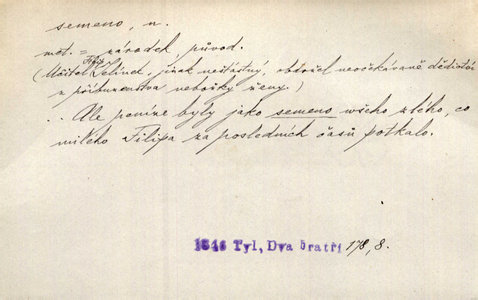 semeno, n.
met. = zárodek, původ.
Filip
(Učitel Jelínek, jinak nešťastný, obdržel neočekávaně dědictví
z příbuzenstva nebožky ženy.)
.. Ale peníze byly jako semeno všeho zlého, co
milého Filipa za posledních časů potkalo.
1846 Tyl, Dva bratři 178, 8.